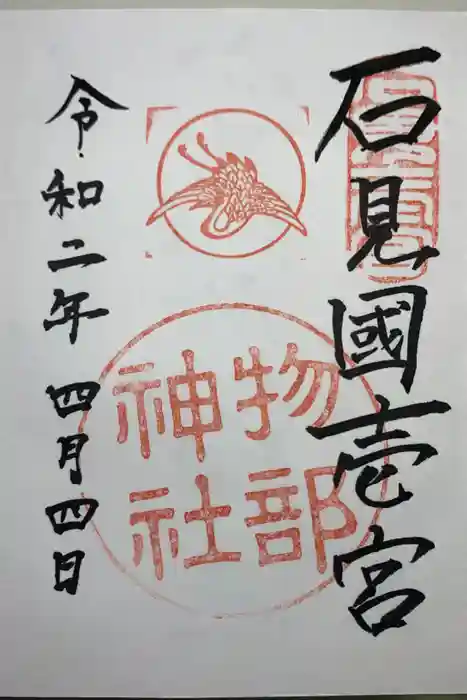 石見國壱宮
物部
神社
令和二年 四月四日